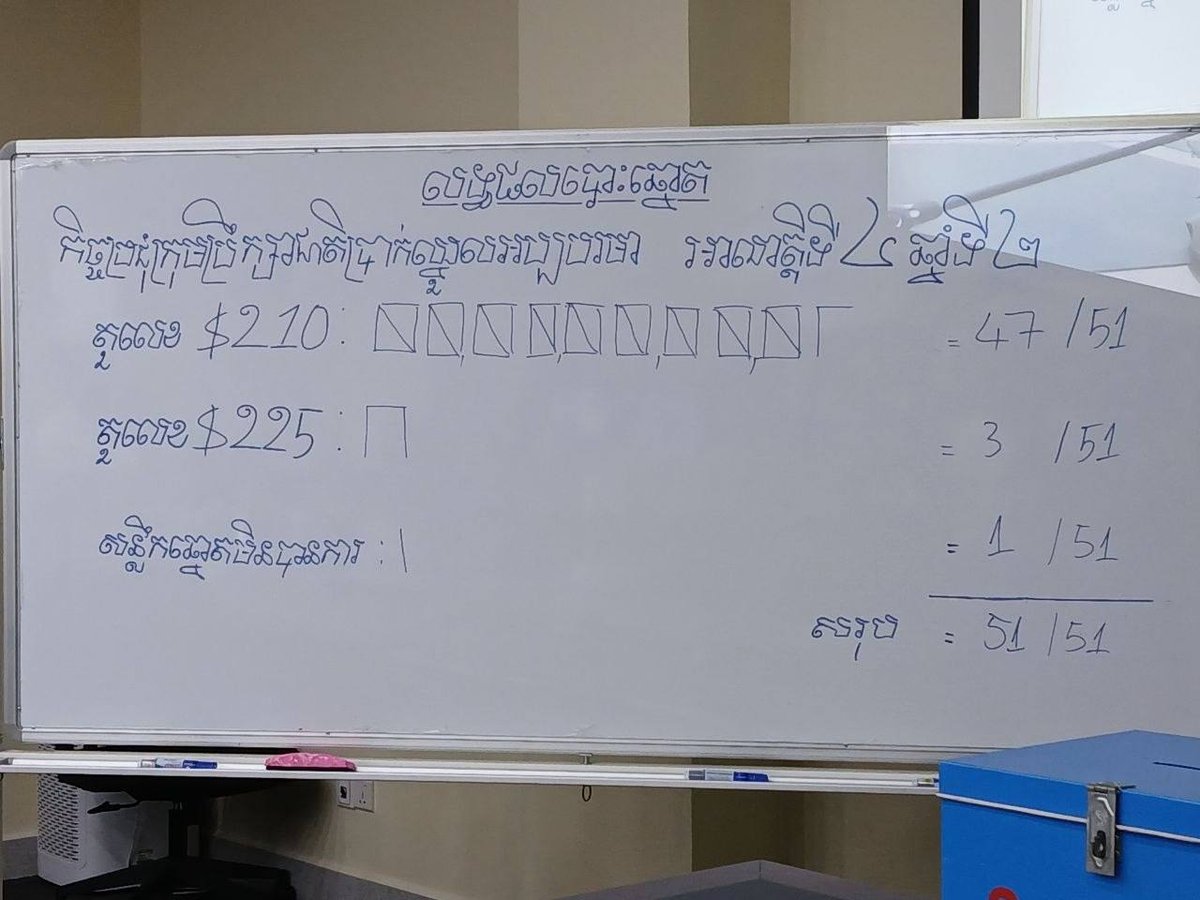 លទ្ធផលបោះឆ្នោត
កិច្ចប្រជុំក្រុមប្រឹក្សាជាតិប្រាក់ឈ្នួលអប្បបរមា អាណត្តិទី ៤ ឆ្នាំទី ២
តួលេខ $210 : = 47 /51
តួលេខ $225 : = 3 /51
សន្លឹកឆ្នោតមិនបានការ : = 1 /51
សរុប = 51 /51